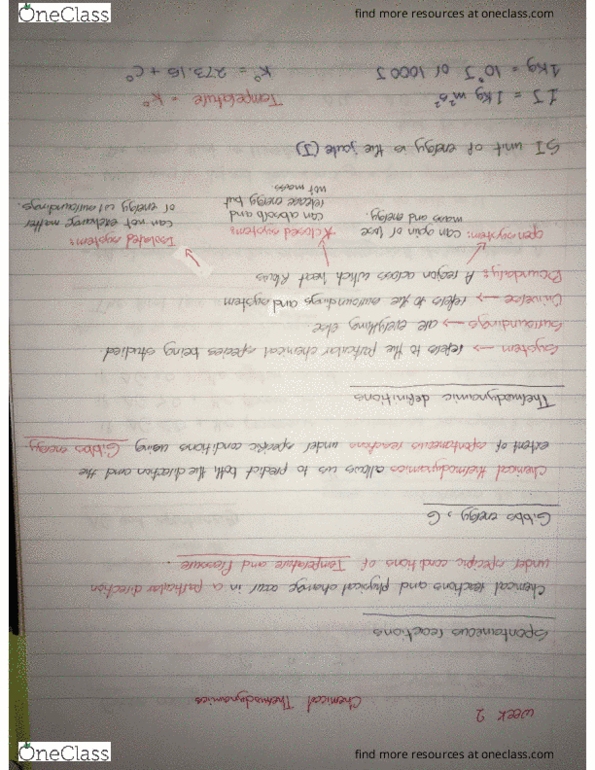 OneClass
find more resources at oneclass.com
week 2
Chemical Thermodynamics
Spontaneous reactions
Chemical reactions and physical change occur in a particular direction
under specific conditions of Temperature and Pressure.
Gibbs energy, G
Chemical thermodynamics allows us to predict both the direction and the
extent of spontaneous reactions under specific conditions using Gibbs energy.
Thermodynamic definitions
System → refers to the particular chemical species being studied.
Surroundings → are everything else.
Universe → refers to the surroundings and system
Boundary: A region across which heat flows
open system: can gain or lose
mass and energy.
closed system:
can absorb and
release energy but
not mass
Isolated system:
can not exchange matter
or energy w/ surroundings.
SI unit of energy is the joule (J)
1J = 1kg m² s²
1kg = 10³J or 1000J
Temperature = K°
K° = 273.15 + C°
OneClass
find more resources at oneclass.com